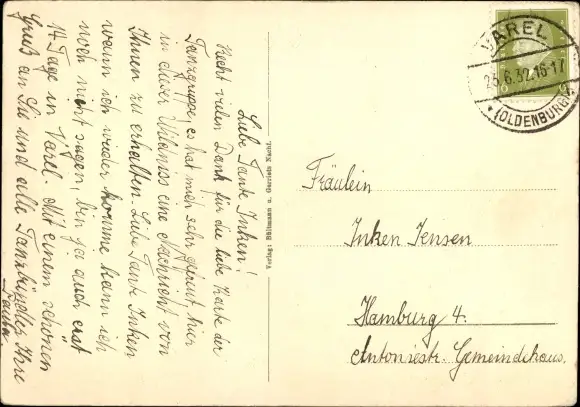 Liebe Tante Inken!
Recht vielen Dank für die liebe Karte der
Tanzgruppe, es hat mich sehr gefreut hier
in dieser Wildniss eine Nachricht von
Ihnen zu erhalten. Liebe Tante Inken
wann ich wieder komme kann ich
noch nicht sagen, bin ja auch erst
14 Tage in Varel. Mit einem schönen
Gruß an Sie und alle Ihre
Verlag: Bültmann u. Gerriets Nachf.
VAREL
23.6.32.16-17
(OLDENBURG)
Fräulein
Inken Jensen
Hamburg 4.
Antoniestr. Gemeindehaus.